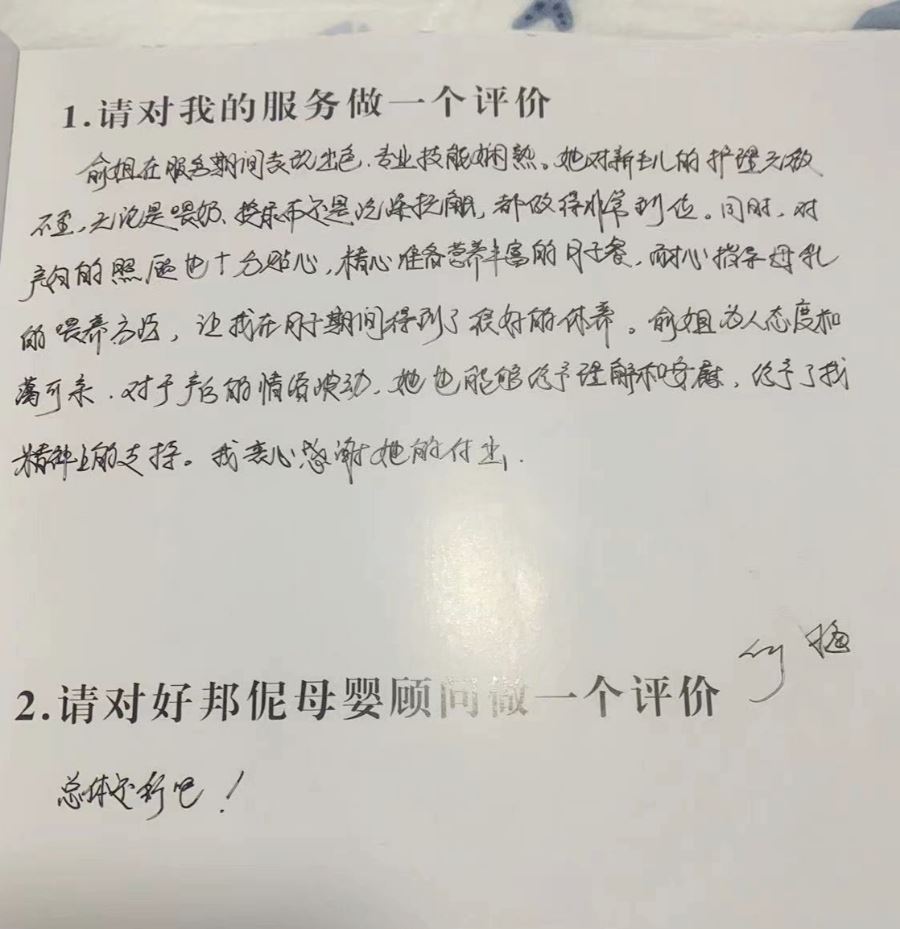 1.请对我的服务做一个评价
俞姐在服务期间表现出色,专业技能娴熟。她对新生儿的护理无微
不至,无论是喂奶、换尿布还是洗澡抚触,都做得非常到位。同时,对
产妇的照顾也十分贴心,精心准备营养丰富的月子餐,耐心指导母乳
的喂养方法,让我在月子期间得到了很好的休养。俞姐为人态度和
蔼可亲.对于产后的情绪波动,她也能够给予理解和安慰,给予了我
精神上的支持。我衷心感谢她的付出.
2.请对好邦伲母婴顾问做一个评价
总体还行吧!